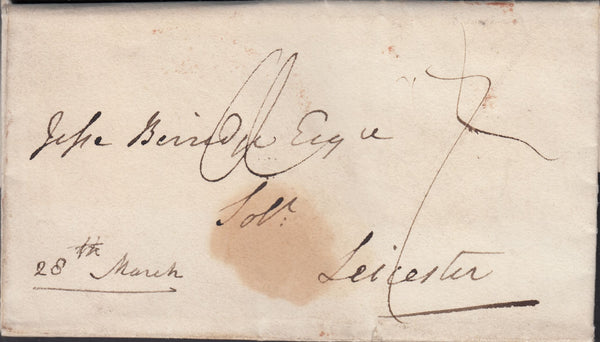 Jesse Berridge Esqre
Solr.
Leicester
28th March